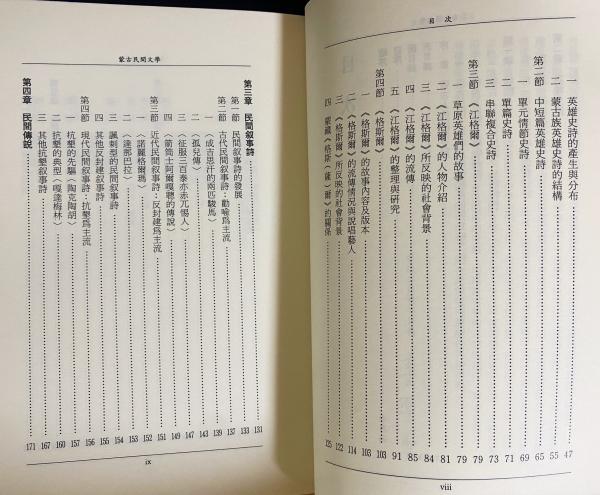 目次
一 英雄史詩的產生與分布 47
二 蒙古族英雄史詩的結構 55
第二節 中短篇英雄史詩 65
一 單元情節史詩 69
二 單篇史詩 71
三 串聯複合史詩 73
第三節 《江格爾》 79
一 草原英雄們的故事 79
二 《江格爾》的人物介紹 81
三 《江格爾》所反映的社會背景 84
四 《江格爾》的流傳 85
五 《江格爾》的整理與研究 91
第四節 《格斯爾》 103
一 《格斯爾》的故事內容及版本 103
二 《格斯爾》的流傳情況與說唱藝人 114
三 《格斯爾》所反映的社會背景 122
四 蒙藏《格斯(薩)爾》的關係 125
viii
蒙古民間文學
第三章 民間敘事詩 131
第一節 民間敘事詩的發展 133
第二節 古代民間敘事詩：勸喻爲主流 137
一 〈成吉思汗的兩匹駿馬〉 139
二 〈孤兒傳〉 143
三 〈征服三百泰亦赤兀惕人〉 147
四 〈箭筒士阿爾嘎聰的傳說〉 148
第三節 近代民間敘事詩：反封建爲主流 151
一 〈諾麗格爾瑪〉 152
二 〈達那巴拉〉 153
三 諷刺型的民間敘事詩 154
四 其他反封建敘事詩 155
第四節 現代民間敘事詩：抗墾爲主流 156
一 抗墾的先驅〈陶克陶胡〉 157
二 抗墾的典型〈嘎達梅林〉 160
三 其他抗墾敘事詩 167
第四章 民間傳說 171
ix